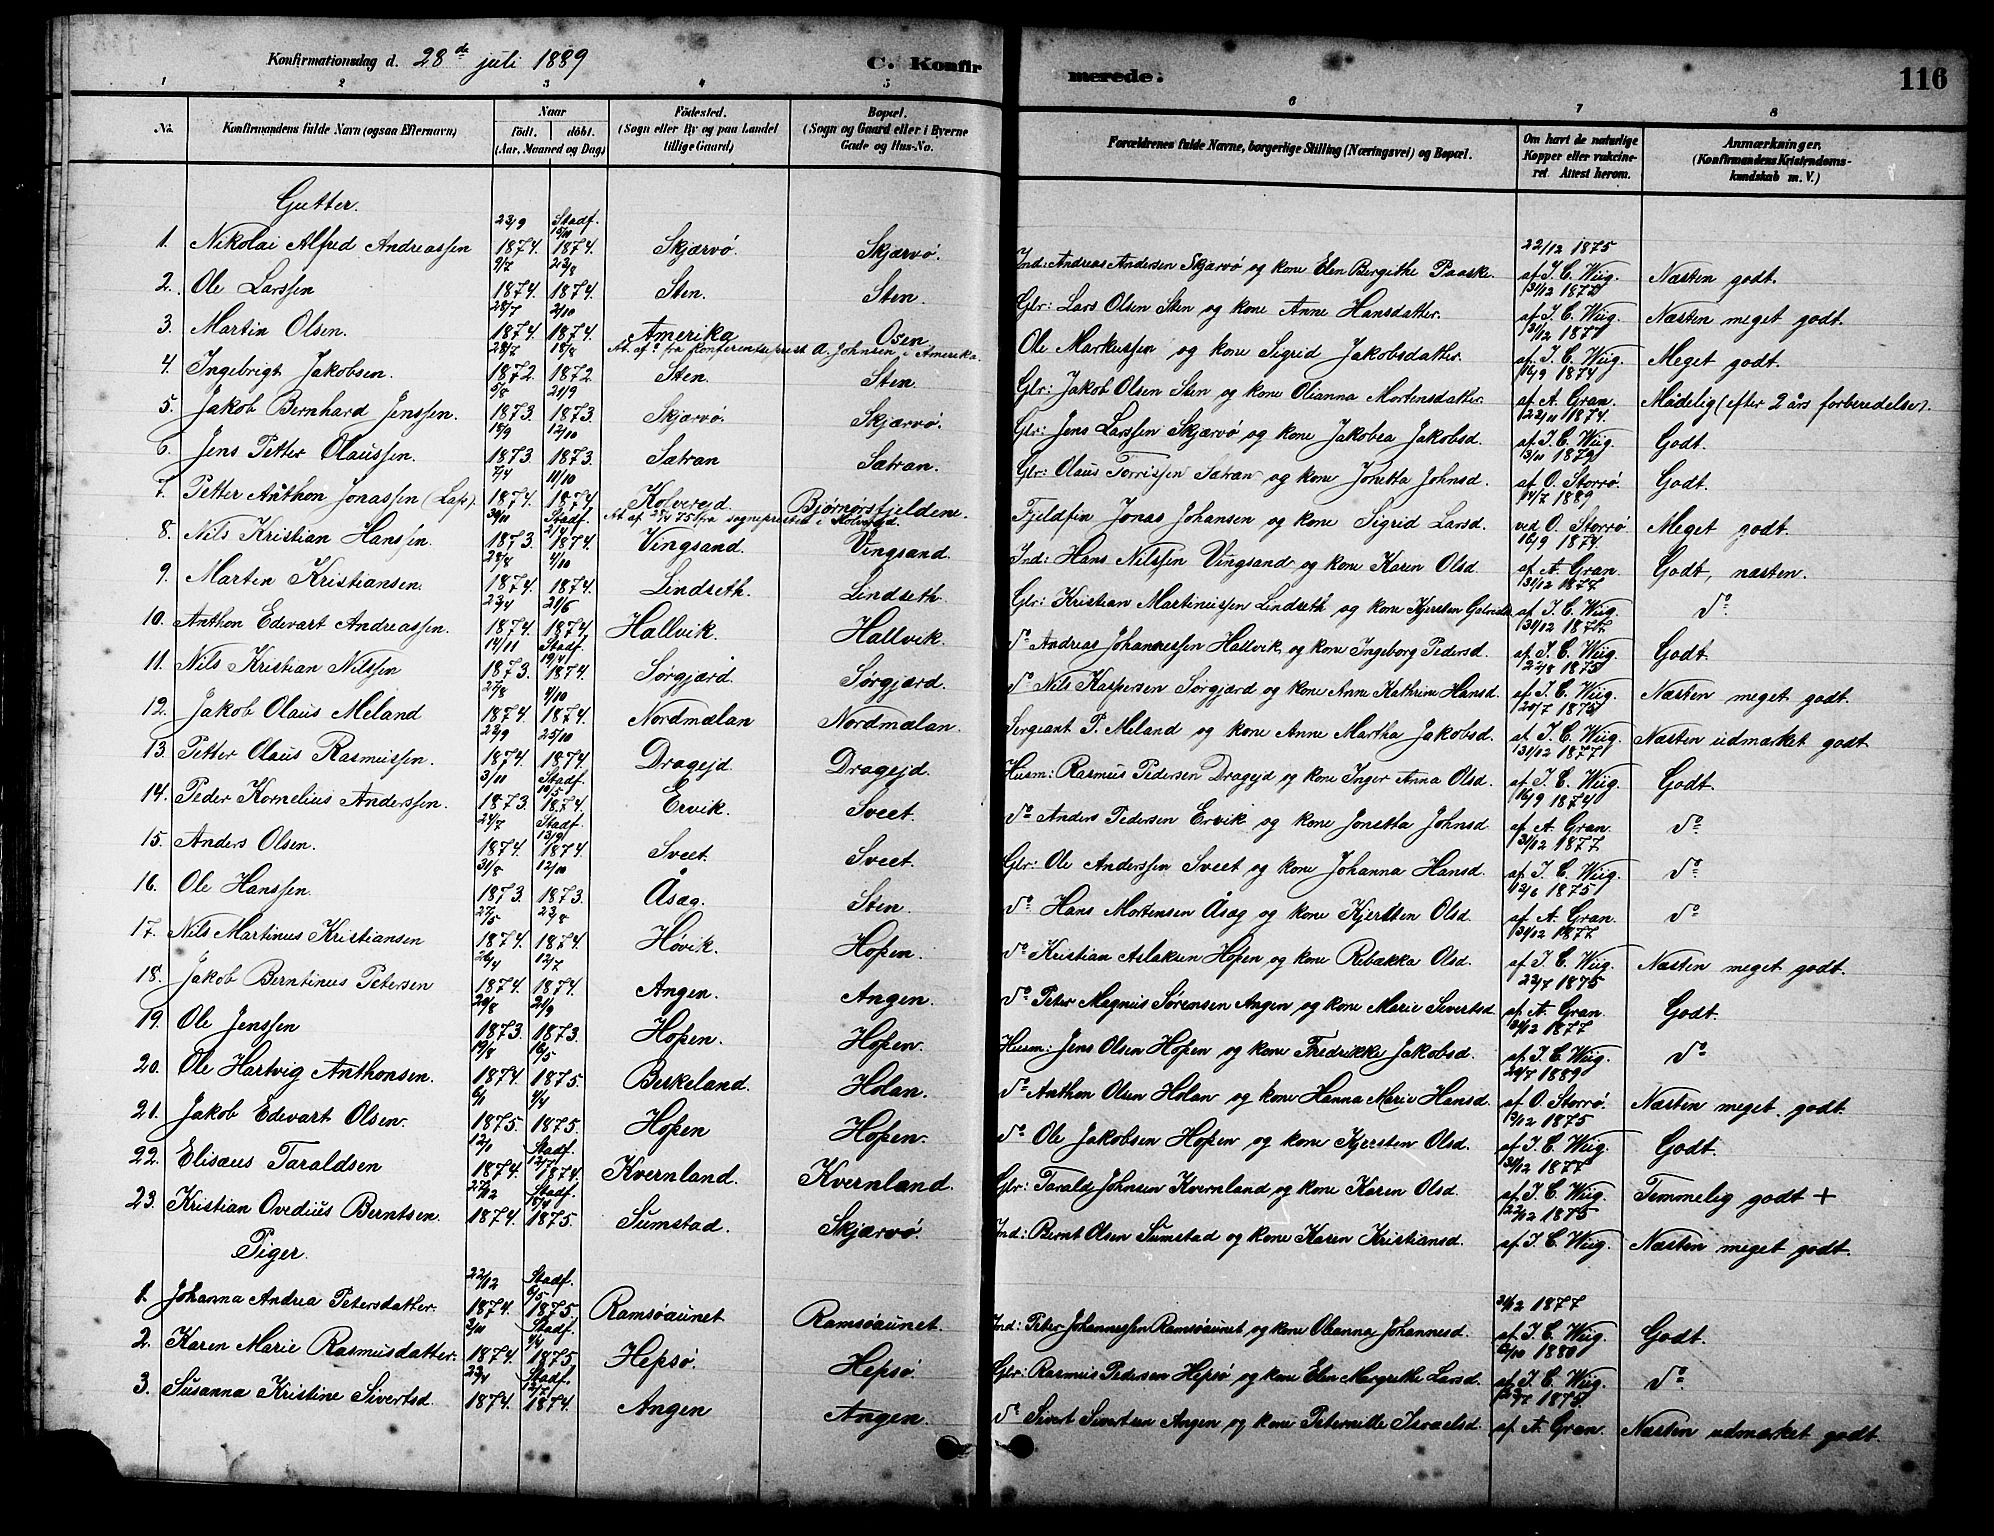 Konfirmationsdag d. 28de juli 1889
C. Konfirmerede.
116
1 2 3 4 5 6 7 8
No. Konfirmandens fulde Navn (ogsaa Efternavn) Naar födt. döbt. (Aar, Maaned og Dag) Födested. (Sogn eller By og paa Landet tillige Gaard) Bopæl. (Sogn og Gaard eller i Byerne Gade og Hus-No. Forældrenes fulde Navne, borgerlige Stilling (Næringsvei) og Bopæl. Om havt de naturlige Kopper eller vakcineret. Attest herom. Anmærkninger. (Konfirmandens Kristendomskundskab m. V.)
Gutter.
1. Nikolai Alfred Andreassen 23/9 1874. Stadf. 15/11 1874. Skjærvö. Skjærvö. Ind: Andreas Andersen Skjærvö og kone Elen Bergithe Paaske. 22/12 1875 af I. C. Wiig. Næsten godt.
2. Ole Larssen 9/7 1874. 23/8 1874. Sten. Sten. Glr: Lars Olsen Sten og kone Anne Hansdatter. af I. C. Wiig. Næsten meget godt.
3. Martin Olsen. 28/7 1874. 2/10 1874. Amerika Osen. Ole Markussen og kone Sigrid Jakobsdatter. 31/12 1877 af I. C. Wiig. Meget godt.
A. Johnsen i Amerika.
4. Ingebrigt Jakobsen. 28/7 1872. 18/8 1872. Sten. Sten. Glr: Jakob Olsen Sten og kone Olianna Mortensdatter. 16/9 1874 af A. Gran. Mådelig (efter 2 års forberedelse).
5. Jakob Bernhard Jenssen. 5/8 1873. 21/9 1873. Skjærvö. Skjærvö. Glr: Jens Larssen Skjærvö og kone Jakobea Jakobsd. 22/11 1874. af I. C. Wiig. Godt.
6. Jens Petter Olaussen. 18/9 1873. 12/10 1873. Sætran Sætran. Glr: Olaus Torrissen Sætran og kone Jonetta Johnsd. 3/11 1879 af O. Storrö Godt.
7. Petter Anthon Jonassen (Lap). 7/4 1874. 11/10 1874. Kolvereid. Björnörsfjeldene. Fjeldfin Jonas Johansen og kone Sigrid Larsd. 14/7 1889 ved O. Storrö Meget godt.
8. Nils Kristian Hanssen. 30/11 1873. Stadf. 21/4 1874. Vingsand. Vingsand. Ind: Hans Nilssen Vingsand og kone Karen Olsd. 16/9 1874. af A. Gran. Godt, næsten.
9. Martin Kristiansen. 28/8 1874. 4/10 1874. Lindseth. Lindseth. Glr: Kristian Martinussen Lindseth og kone Kjersten 31/12 1877. af I. C. Wiig. do
10. Anthon Edevart Andreassen. 23/4 1874. 21/6 1874. Hallvik. Hallvik. do Andreas Johannessen Hallvik og kone Ingeborg Pedersd. 31/12 1877. af I. C. Wiig. Godt.
11. Nils Kristian Nilssen 14/11 1873. Stadf. 19/4 1874. Sörgjærd. Sörgjærd. do Nils Kaspersen Sörgjærd og kone Anne Kathrine Hansd. 22/8 1875 af I. C. Wiig. Næsten meget godt.
12. Jakob Olaus Meland 27/8 1874. 4/10 1874. Nordmælan Nordmælan. Sergeant P. Meland og kone Anne Martha Jakobsd. 20/7 1875 af I. C. Wiig. Næsten udmærket godt
13. Petter Olaus Rasmussen. 22/9 1874. 25/10 1874. Drageid. Drageid. Husm: Rasmus Pedersen Drageid og kone Inger Anna Olsd. 31/12 1877 af I. C. Wiig. Godt.
14. Peder Kornelius Anderssen. 3/10 1873. Stadf. 10/5 1874. Ervik. Sveet. do Anders Pedersen Ervik og kone Jonetta Johnsd. 16/9 1874 af A. Gran. do
15. Anders Olsen. 24/7 1874. Stadf. 13/9 1874. Sveet. Sveet. Glr: Ole Anderssen Sveet og kone Johanna Hansd. 31/12 1877 af I. C. Wiig. do
16. Ole Hanssen. 31/8 1873. 12/10 1873. Åsæg. Sten. do Hans Mortensen Åsæg og kone Kjersten Olsd. 1875. af A. Gran. do
17. Nils Martinus Kristiansen 27/5 1874. 23/8 1874. Hövik. Hopen. do Kristian Aslaksen Hopen og kone Rebækka Olsd. 31/12 1877. af I. C. Wiig. Næsten meget godt.
18. Jakob Berntinus Petersen 26/4 1874. 12/7 1874. Angen. Angen. do Peter Magnus Sörensen Angen og kone Marie Sivertsd. 22/7 1875 af A. Gran. Godt.
19. Ole Jenssen 20/8 1873. 21/9 1873. Hopen. Hopen. Husm: Jens Olsen Hopen og kone Fredrikke Jakobsd. 31/12 1877 af I. C. Wiig. do
20. Ole Hartvig Anthonsen. 19/8 1874. 16/5 1875. Berkeland. Holan. do Anthon Olsen Holan og kone Hanna Marie Hansd. 1889 af O. Storrö. Næsten meget godt.
21. Jakob Edevart Olsen. 6/1 1875. 4/4 1875. Hopen Hopen. do Ole Jakobsen Hopen og kone Kjersten Olsd. 1875 af I. C. Wiig. Godt.
22. Elisæus Taraldsen 12/1 1874. Stadf. 12/7 1874. Kvernland. Kvernland. Glr: Tarald Johnsen Kvernland og kone Karen Olsd. 31/12 1877 af I. C. Wiig. Temmelig godt +
23. Kristian Ovedius Berntsen. 27/12 1874. Stadf. 1875. Sumstad. Skjærvö. Ind: Bernt Olsen Sumstad og kone Karen Kristiansd. 22/12 1875 af I. C. Wiig. Næsten meget godt.
Piger.
1. Johanna Andrea Petersdatter. 22/12 1874. Stadf. 6/5 1875. Ramsöaunet Ramsöaunet. Ind: Peter Johannessen Ramsöaunet og kone Oleanna Johannesd. 31/12 1877 af I. C. Wiig. Godt.
2. Karen Marie Rasmusdatter. 3/11 1874. Stadf. 4/4 1875. Hepsö. Hepsö. Glr: Rasmus Pedersen Hepsö og kone Elen Margrethe Larsd. 1880 af I. C. Wiig. do
3. Susanna Kristine Sivertsd. 23/4 1874. Stadf. 12/7 1874. Angen Angen. do Sivert Sivertsen Angen og kone Peternille Israelsd. 22/7 1875. af A. Gran. Næsten udmærket godt.